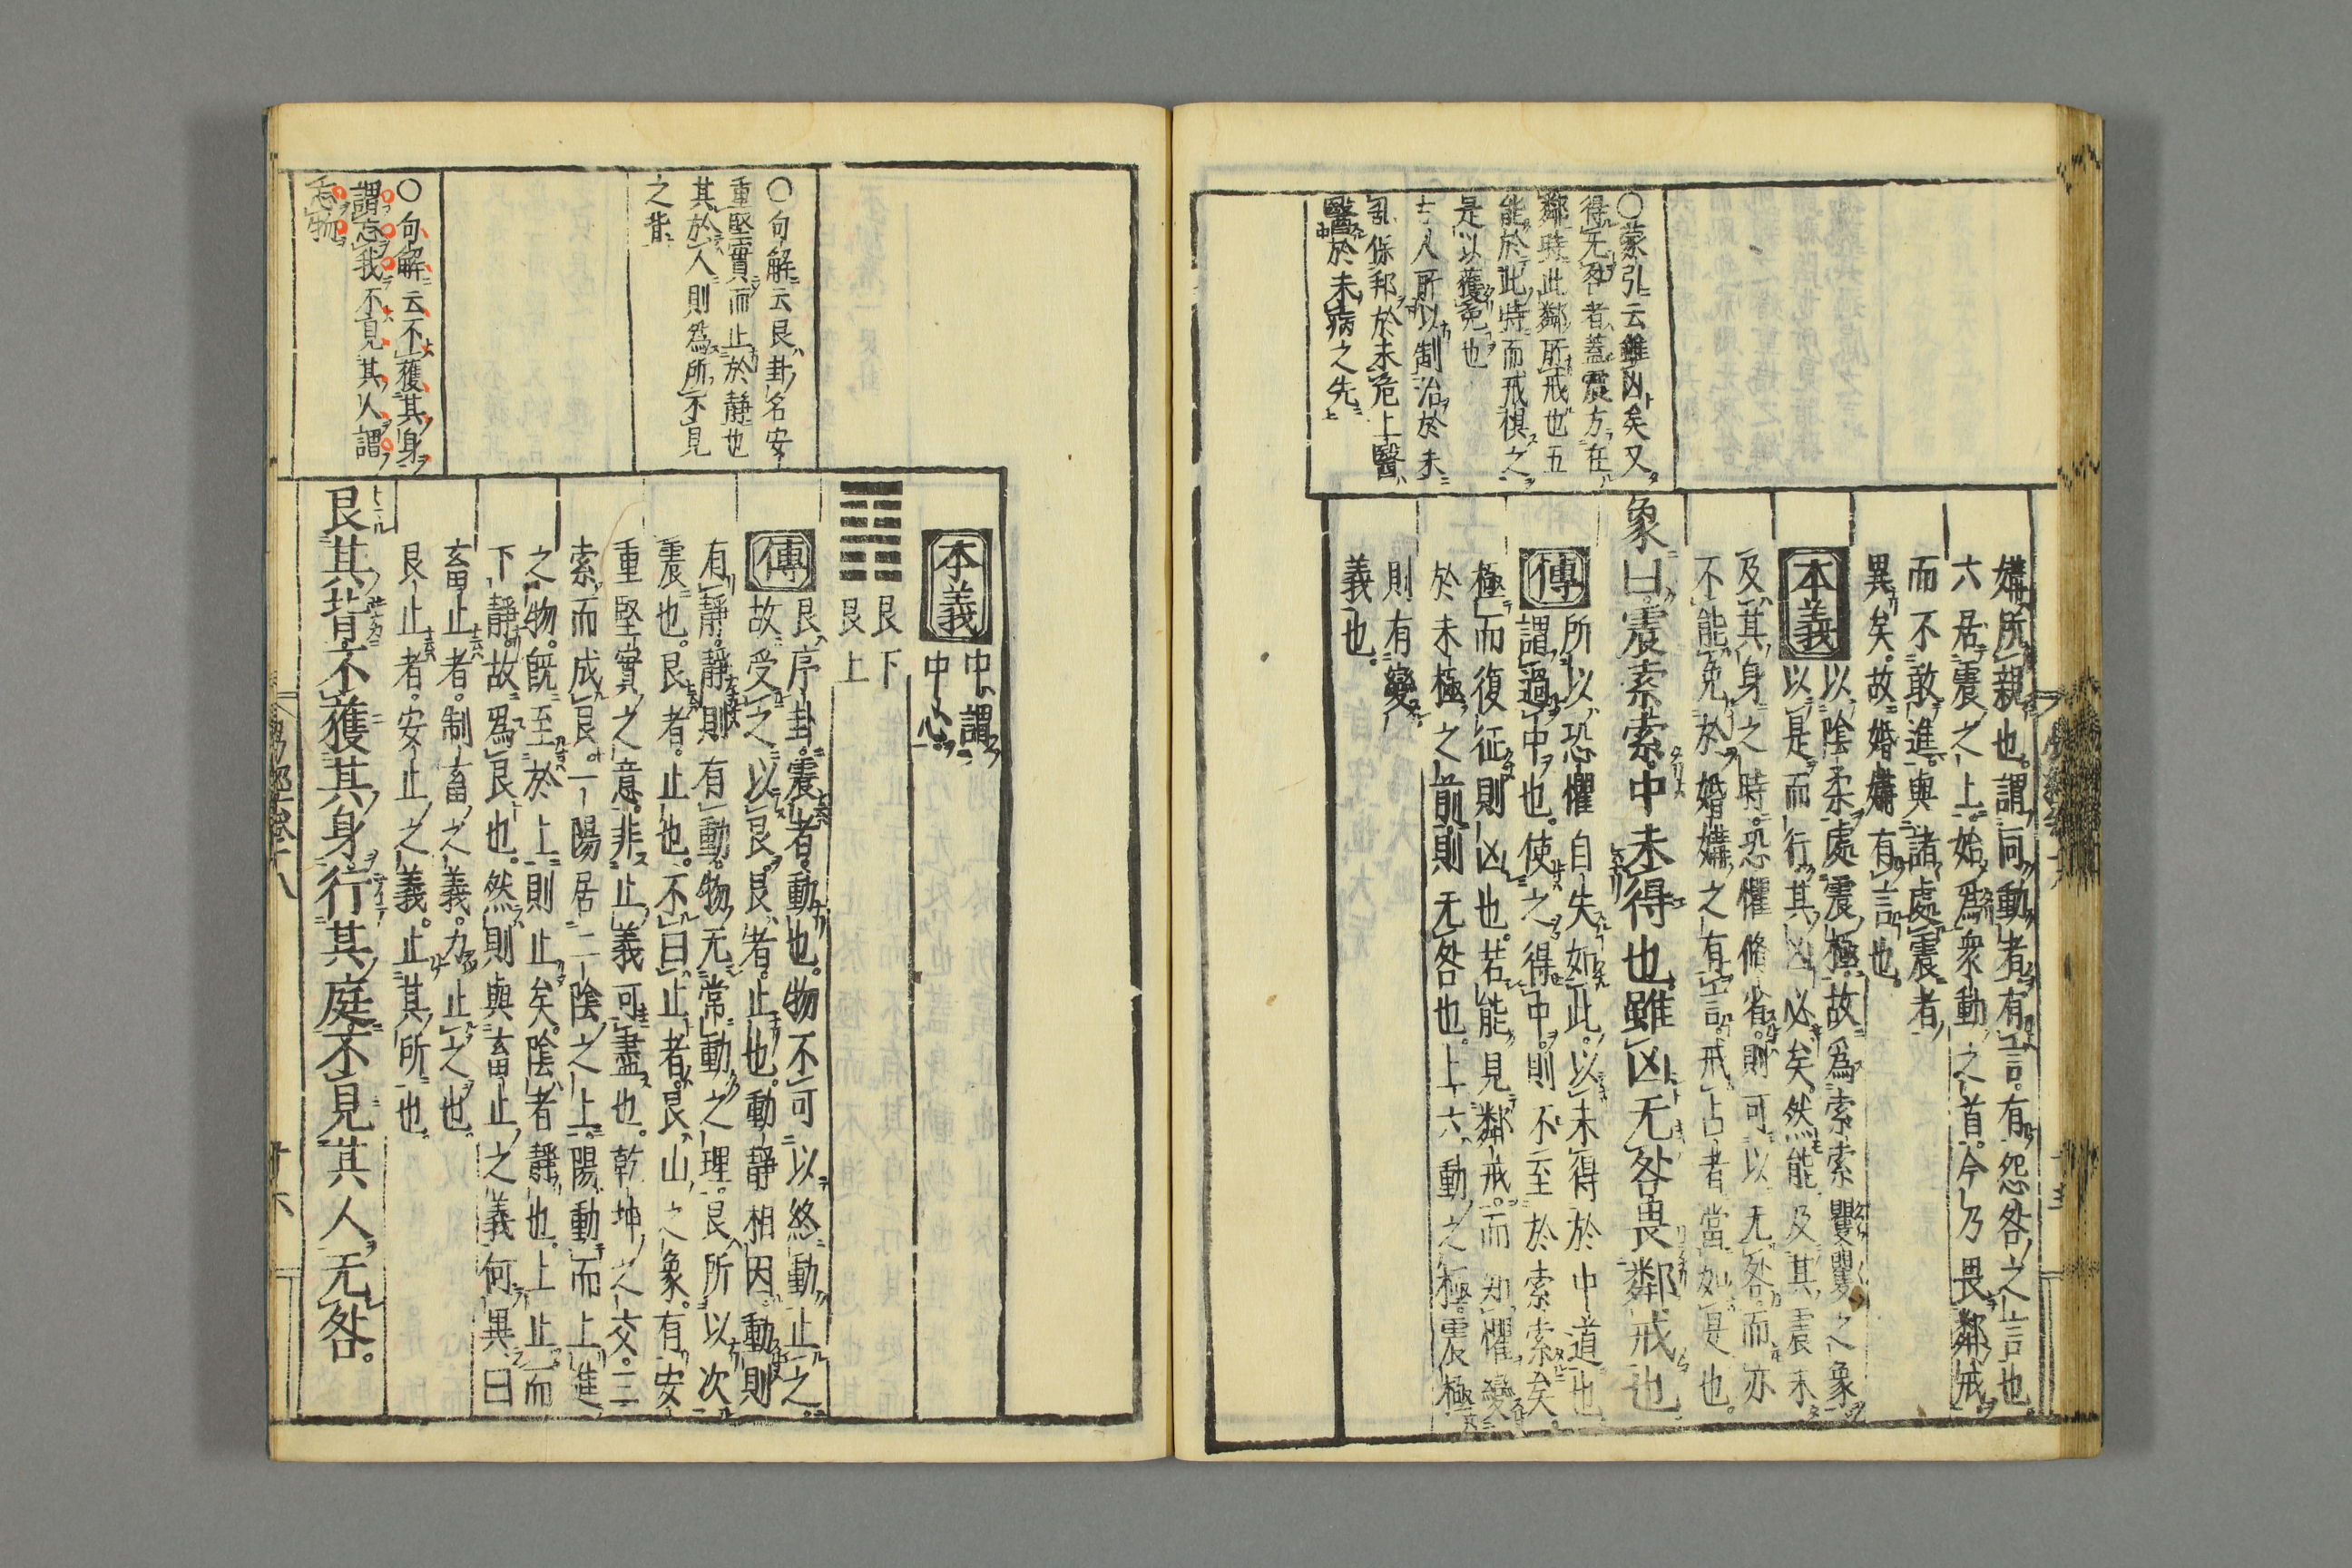 媾所親也。謂同動者。有言。有怨咎之言也。
六居震之上。始爲衆動之首。今乃畏鄰戒
而不敢進。與諸處震者
異矣。故婚媾有言也。
本義
以陰柔處震極。故爲索索矍矍之象。
以是而行其凶必矣。然能及其震未
及其身之時。恐懼脩省。則可以无咎。而亦
不能免於婚媾之有言。戒占者當如是也。
象曰。震索索。中未得也。雖凶无咎畏鄰戒也
傳
所以恐懼自失如此。以未得於中道也
謂過中也。使之得中。則不至於索索矣。
極而復征則凶也。若能見鄰戒。而知懼變
於未極之前則无咎也。上六動之極。震極
則有變
義也。
○蒙引云雖凶矣又
得无咎者蓋震方在
鄰時此鄰所戒也五
能於此時而戒惧之
是以獲免也
古人所以制治於未
乱保邦於未危上醫
醫於未病之先
本義
中謂
中心
艮下
艮上
傳
艮序卦。震者。動也。物不可以終動止之。
故受之以艮。艮者。止也。動靜相因。動則
有靜。靜則有動。物无常動之理。艮所以次
震也。艮者。止也。不曰止者。艮山之象。有安
重堅實之意。非止義可盡也。乾坤之交。三
索而成艮。一陽居二陰之上。陽動而上進
之物。旣至於上則止矣。陰者靜也。上止而
下靜。故爲艮也。然則與畜止之義何異曰
畜止者。制畜之義。力止之也。
艮止者。安止之義。止其所也。
艮其背。不獲其身。行其庭。不見其人。无咎。
○句解云艮卦名安
重堅實而止於靜也
其於人則爲所不見
之背
○句解云不獲其身
謂忘我不見其人謂
忘物
易經卷十八